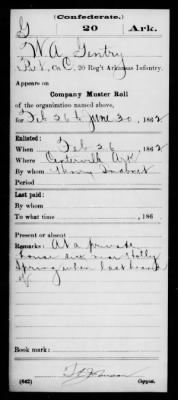 (Confederate.)
G 20 Ark.
W A Gentry
Pvt, Co. C, 20 Reg't Arkansas Infantry.
Appears on
Company Muster Roll
of the organization named above,
for Feb 26 to June 30, 1862
Enlisted:
When Feb 26, 1862
Where Centerville Ark
By whom
Period
Last paid:
By whom
To what time , 186
Present or absent
Remarks: At a private
house sick near Holly
Springs when last heard
of
Book mark:
(642) Copyist.